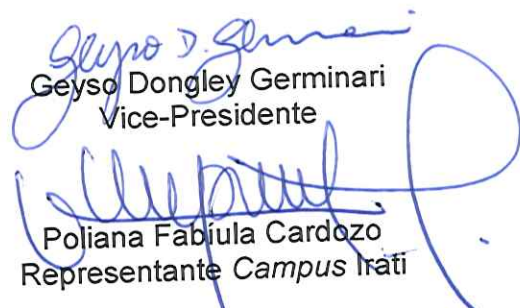 Geyso D. Germinari
Geyso Dongley Germinari
Vice-Presidente
Poliana Fabíula Cardozo
Representante Campus Irati